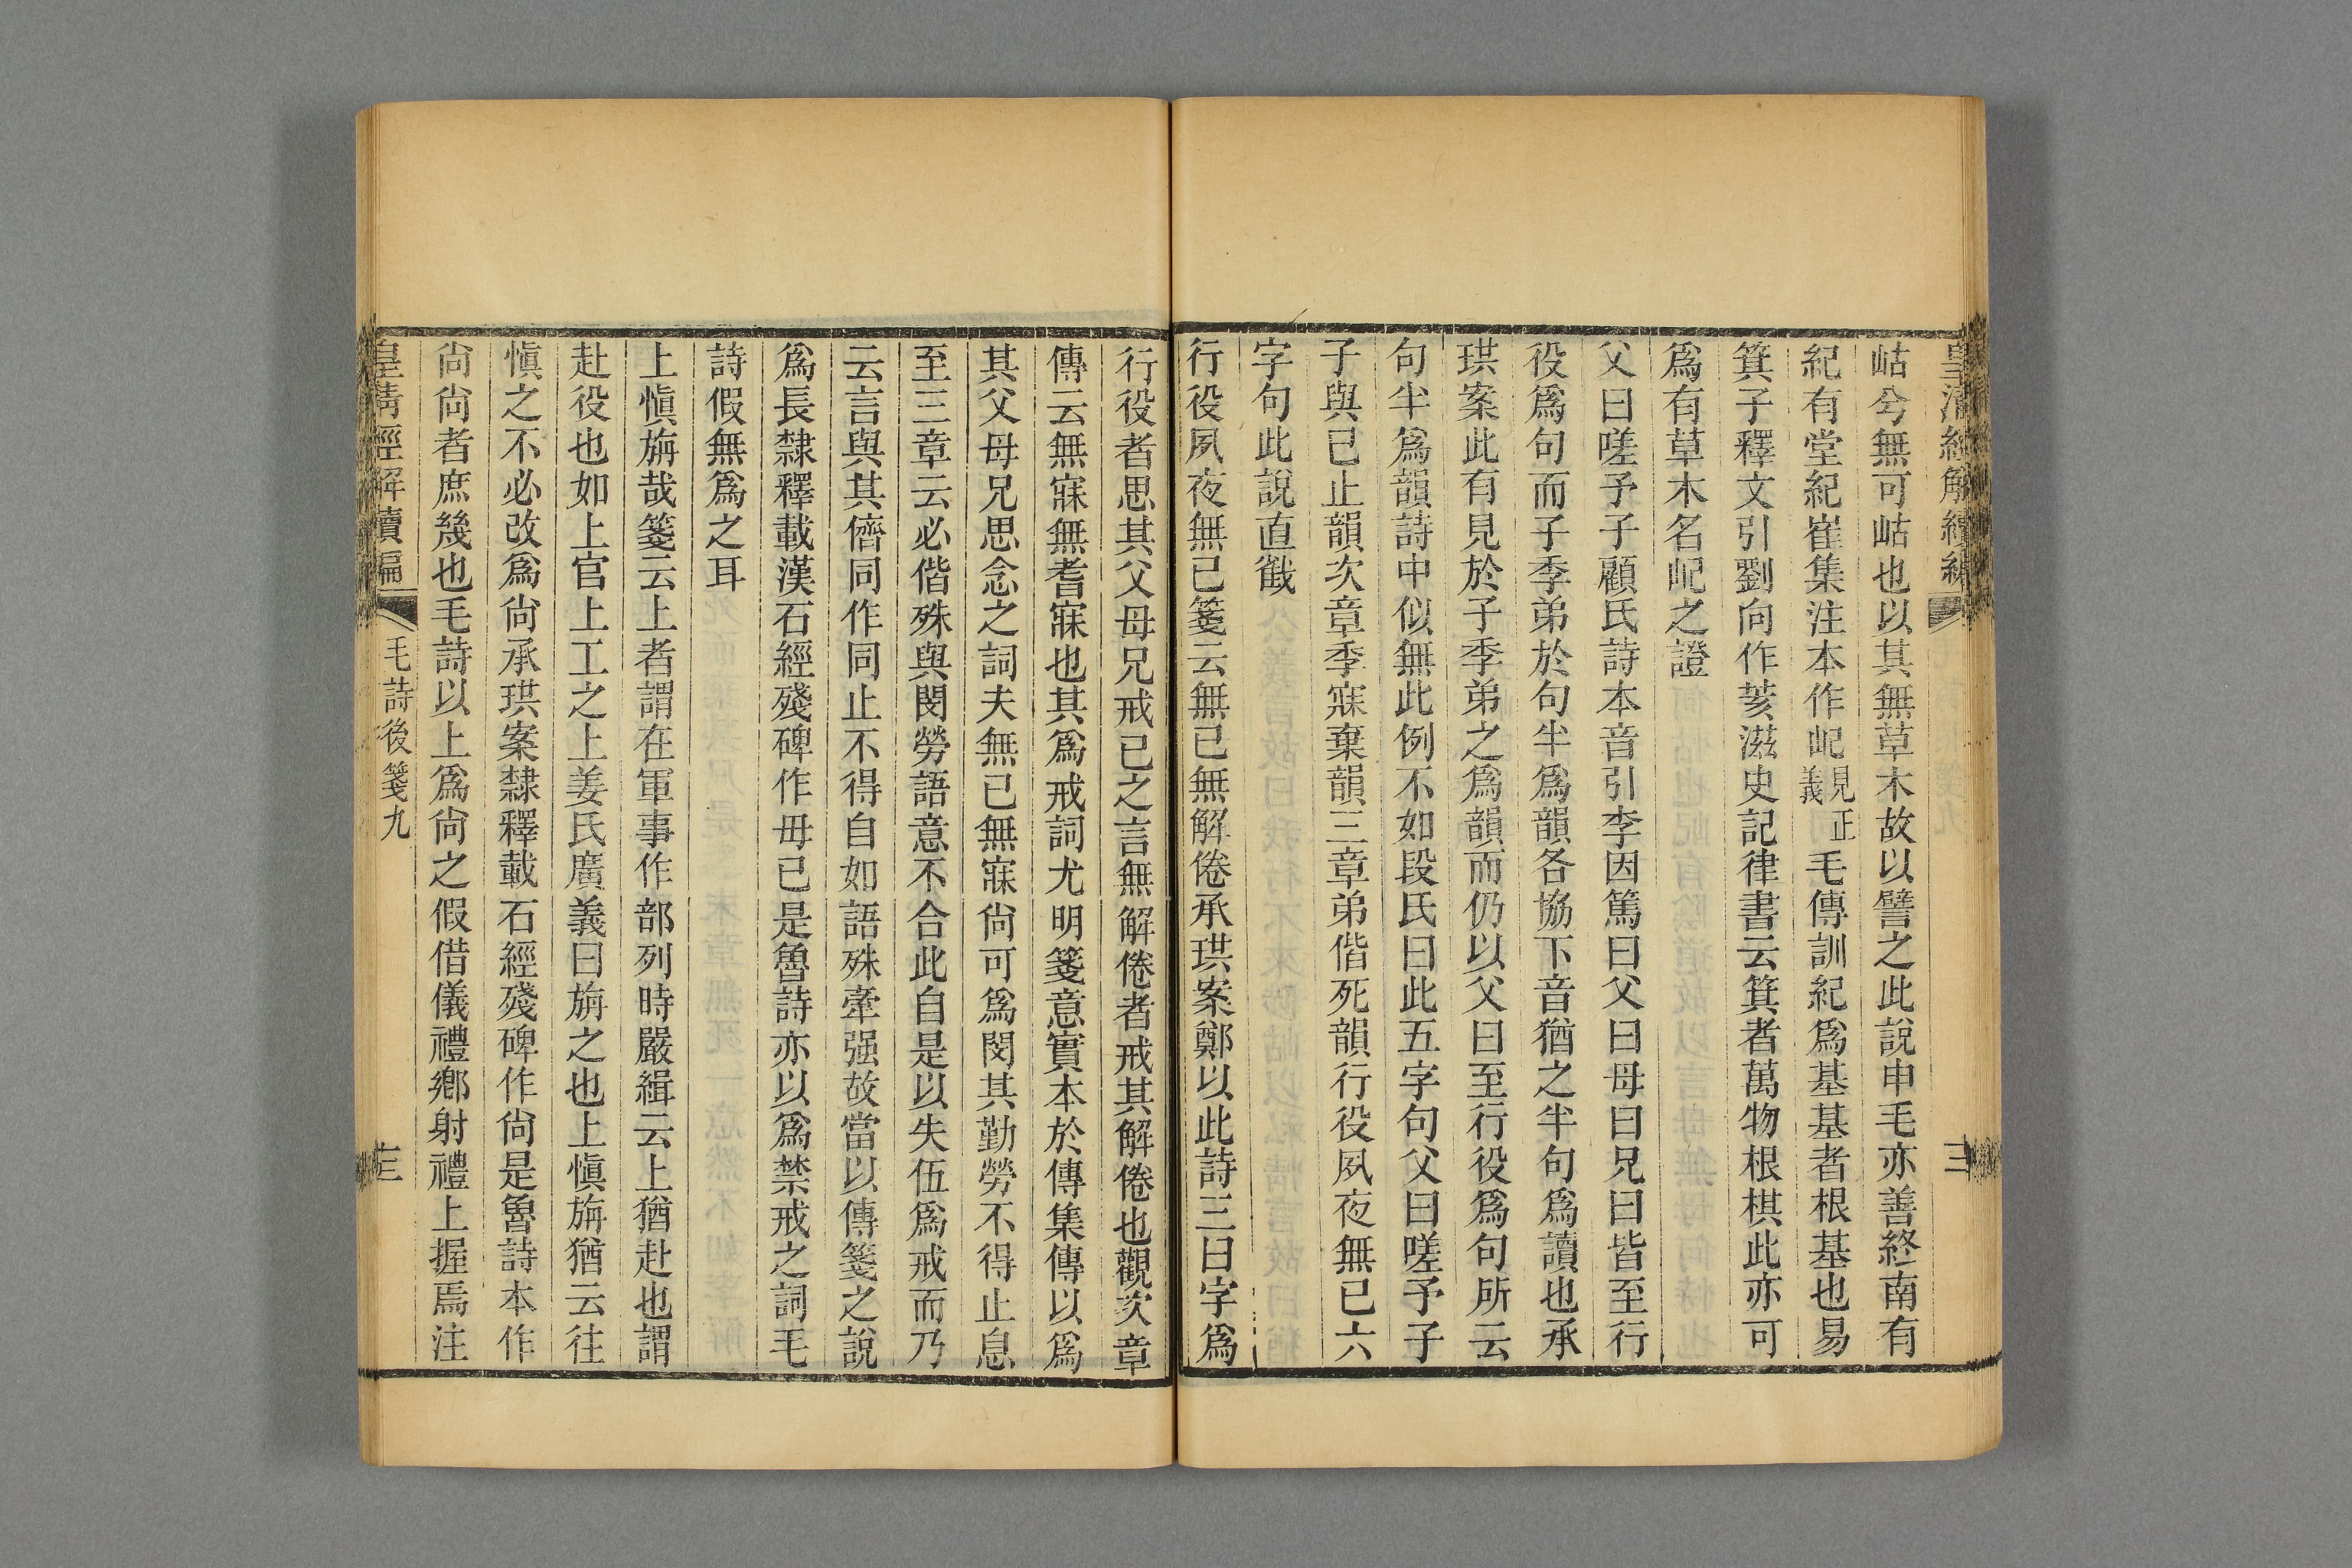 皇清經解續編
三
岵兮無可岵也以其無草木故以譬之此說申毛亦善終南有
紀有堂紀崔集注本作屺見正義毛傳訓紀爲基基者根基也易
箕子釋文引劉向作荄滋史記律書云箕者萬物根棋此亦可
爲有草木名屺之證
父曰嗟予子顧氏詩本音引李因篤曰父曰母曰兄曰皆至行
役爲句而子季弟於句半爲韻各協下音猶之半句爲讀也承
珙案此有見於子季弟之爲韻而仍以父曰至行役爲句所云
句半爲韻詩中似無此例不如段氏曰此五字句父曰嗟予子
子與已止韻次章季寐棄韻三章弟偕死韻行役夙夜無已六
字句此說直截
行役夙夜無已箋云無已無解倦承珙案鄭以此詩三曰字爲
行役者思其父母兄戒已之言無解倦者戒其解倦也觀次章
傳云無寐無耆寐也其爲戒詞尤明箋意實本於傳集傳以爲
其父母兄思念之詞夫無已無寐尙可爲閔其勤勞不得止息
至三章云必偕殊與閔勞語意不合此自是以失伍爲戒而乃
云言與其儕同作同止不得自如語殊牽强故當以傳箋之說
爲長隸釋載漢石經殘碑作毋已是魯詩亦以爲禁戒之詞毛
詩假無爲之耳
上愼旃哉箋云上者謂在軍事作部列時嚴緝云上猶赴也謂
赴役也如上官上工之上姜氏廣義曰旃之也上愼旃猶云往
愼之不必改爲尙承珙案隸釋載石經殘碑作尙是魯詩本作
尙尙者庶幾也毛詩以上爲尙之假借儀禮鄕射禮上握焉注
皇清經解續編
毛詩後箋九
三